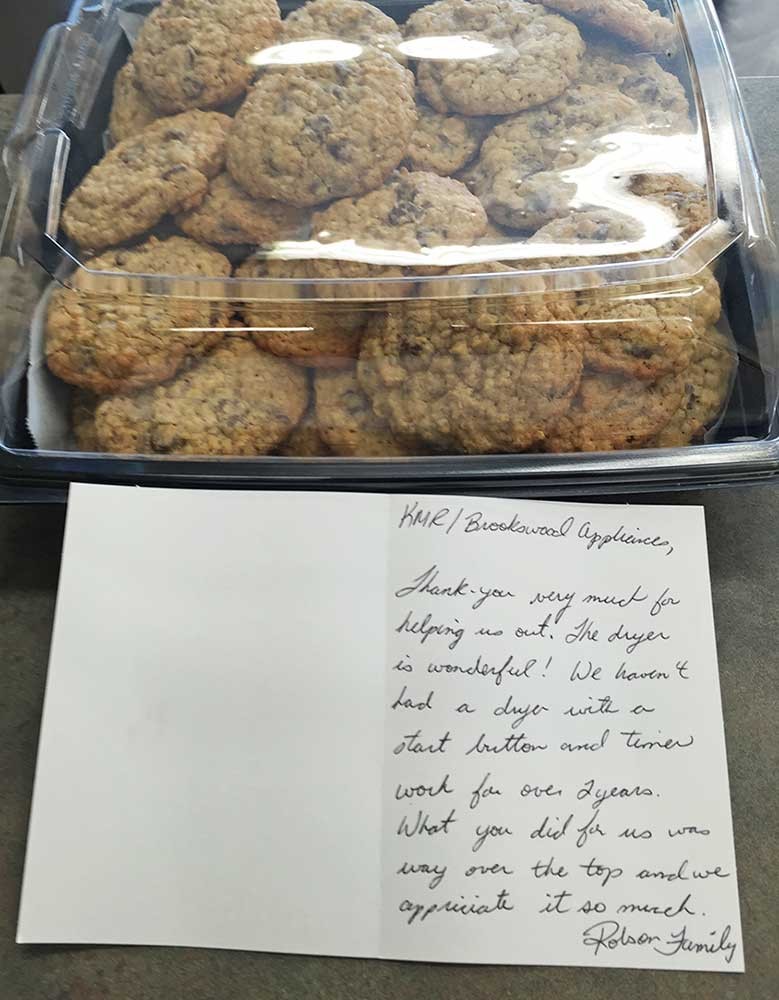 KMR/Brookswood Appliances,
Thank-you very much for
helping us out. The dryer
is wonderful! We haven't
had a dryer with a
start button and timer
work for over 2 years.
What you did for us was
way over the top and we
appriciate it so much.
Robson Family